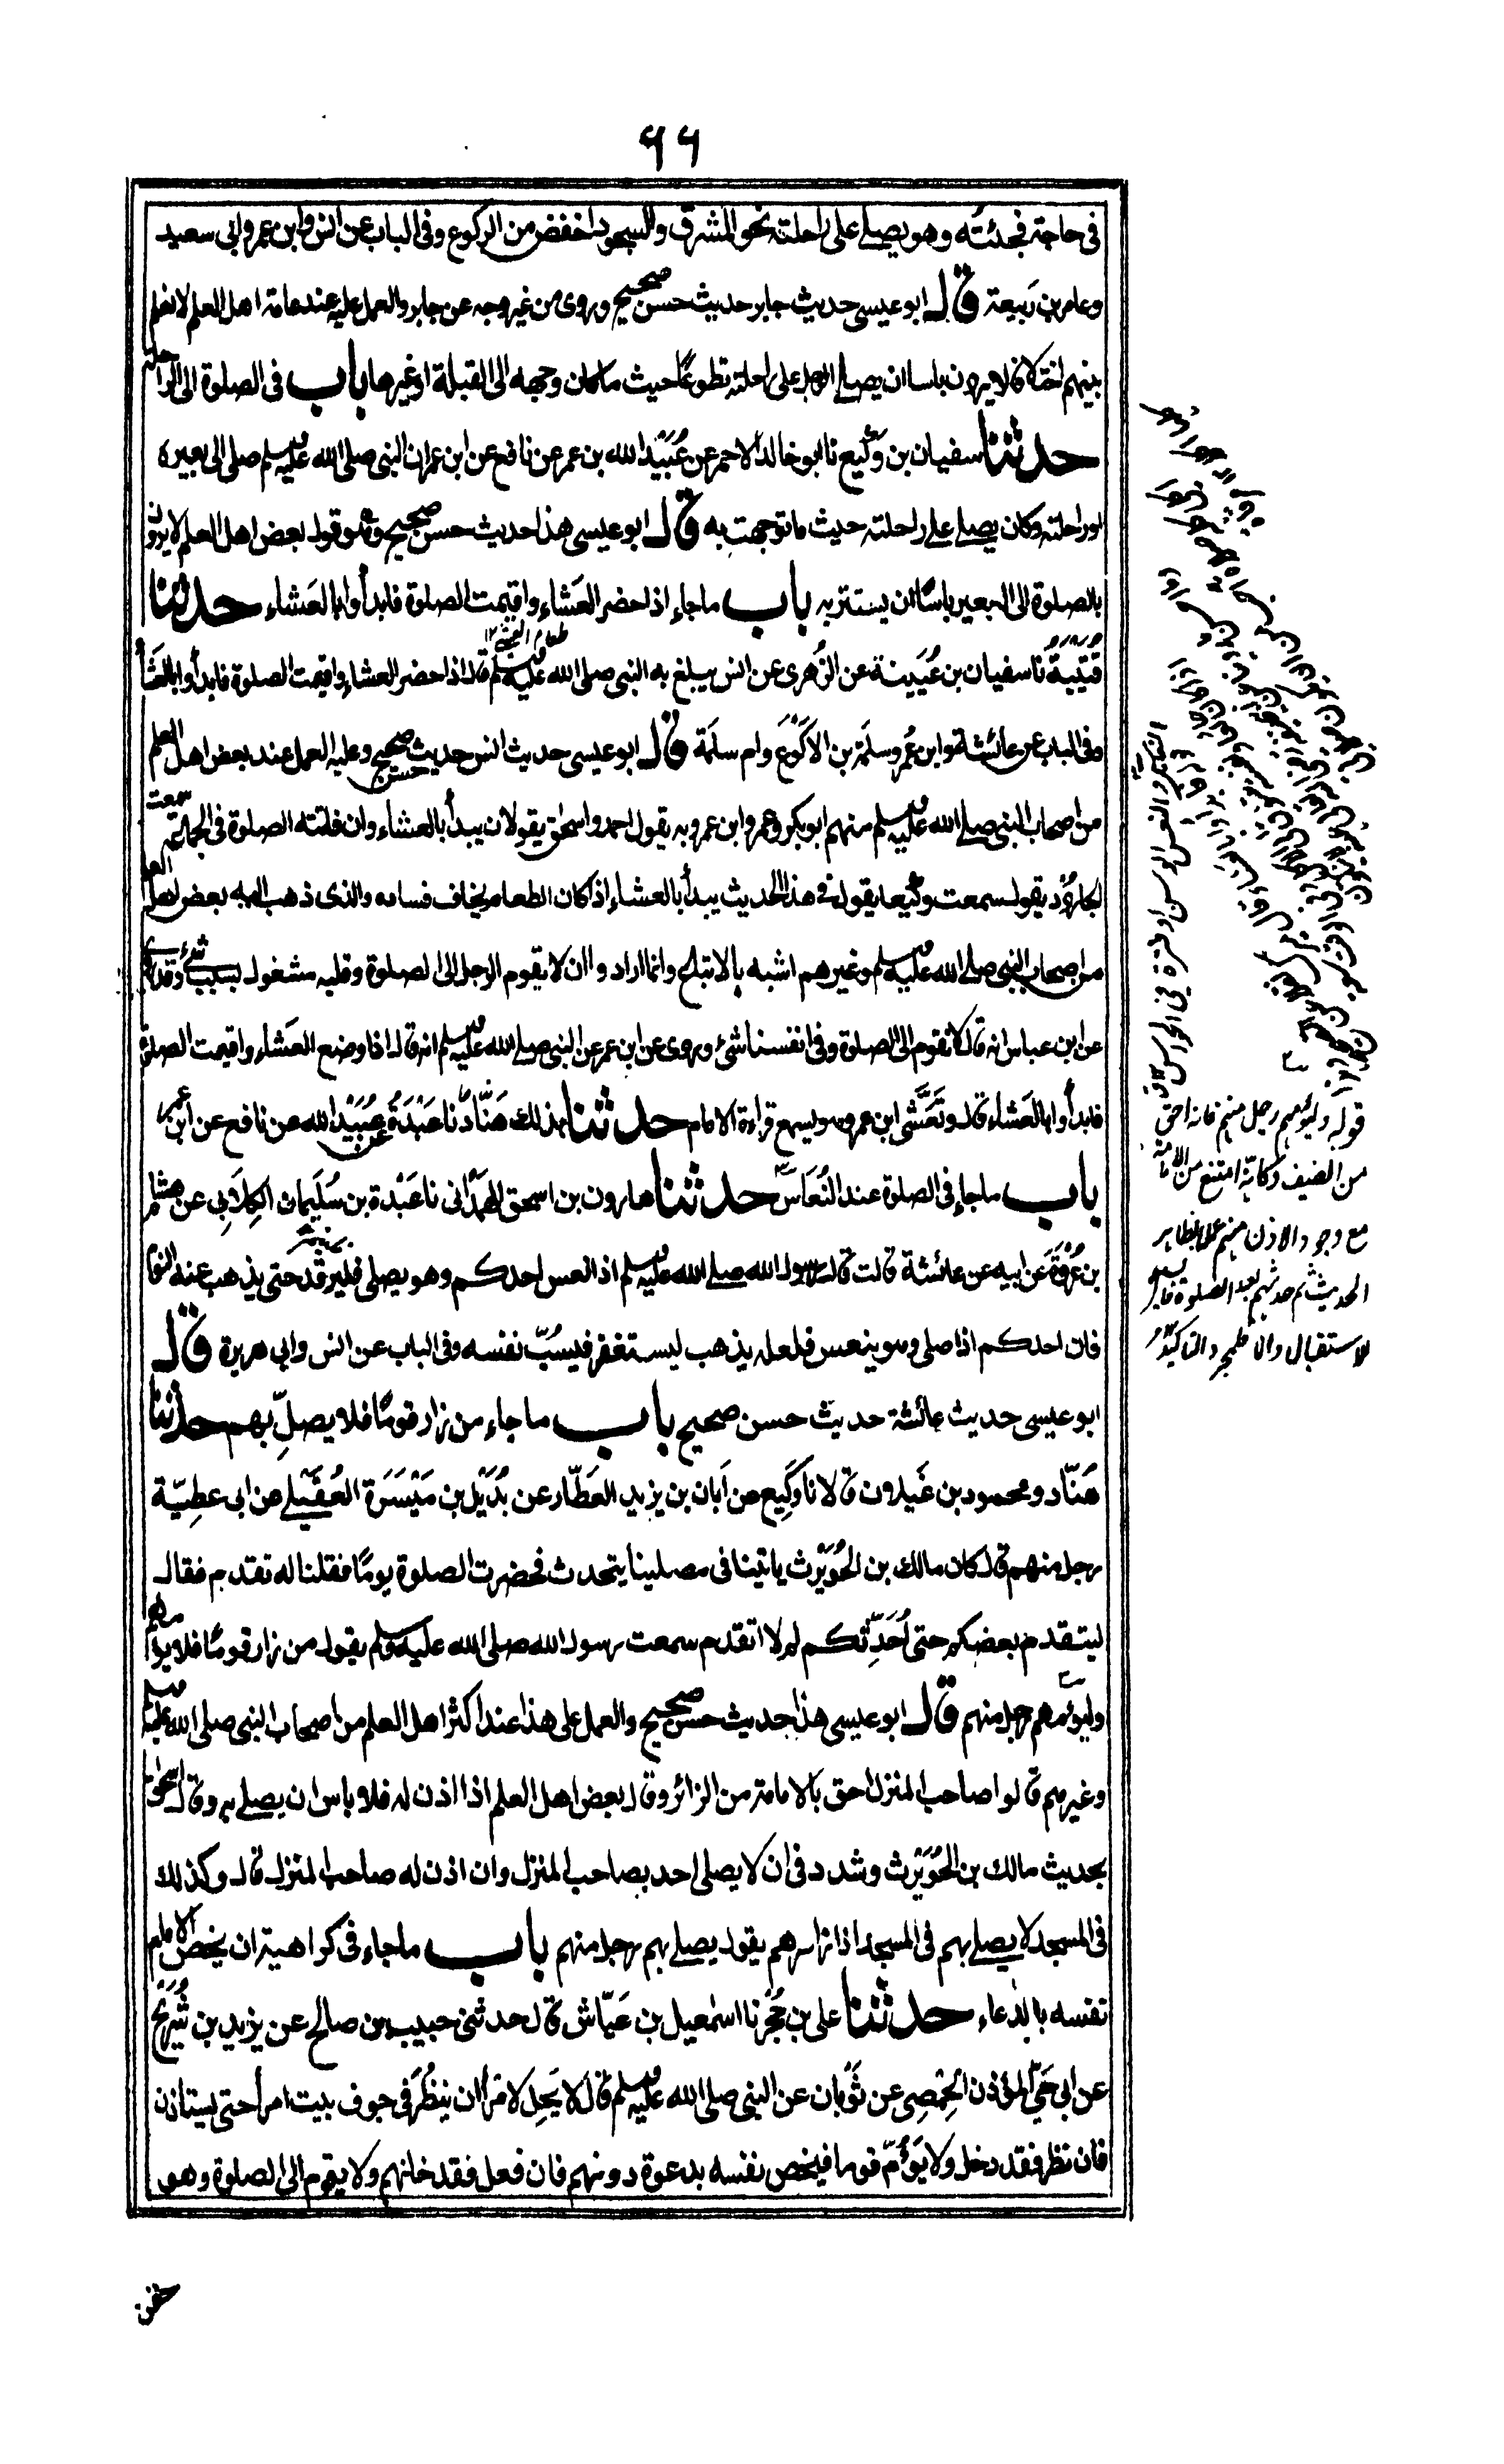 ٦٦
فى حاجة فجئته وهو يصلى على راحلته نحو المشرق والسجود اخفض من الركوع وفى الباب عن انس وابن عمر وابى سعيد
وعامر بن ربيعة قال ابو عيسى حديث جابر حديث حسن صحيح وروى من غير وجه عن جابر والعمل عليه عند عامة اهل العلم لا نعلم
بينهم اختلافا لا يرون باسا ان يصلى الرجل على راحلته تطوعًا حيث ما كان وجهه الى القبلة او غيرها باب فى الصلوة الى الراحلة
حدثنا سفيان بن وَكيع نا ابو خالد الاحمر عن عُبَيْد الله بن عمر عن نافع عن ابن عمر ان النبى صلى الله عليه وسلم صلى الى بعيره
او راحلته وكان يصلى على راحلته حيث ما توجهت به قال ابو عيسى هذا حديث حسن صحيح وهو قول بعض اهل العلم لا يرون
بالصلوة الى البعير باسًا ان يستتر به باب ما جاء اذا حضر العَشاء واقيمت الصلوة فابدأوا بالعَشاء حدثنا
طعام العشى ١٢
قُتَيْبَةُ نا سفيان بن عُيَيْنة عن الزُهرى عن انس يبلغ به النبى صلى الله عليه وسلم قال اذا حضر العشاء واقيمت الصلوة فابدأوا بالعَشاء
وفى الباب عن عائشة وابن عُمر وسلَمة بن الاَكْوَع وام سلَمة قال ابو عيسى حديث انس حديث حسن صحيح وعليه العمل عند بعض اهل العلم
من اصحاب النبى صلى الله عليه وسلم منهم ابو بكر وعمر وابن عمر وبه يقول احمد واسحق يقولان يبدأ بالعشاء وان فاتته الصلوة فى الجماعة سمعت
الجارُوْد يقول سمعت وكيعا يقول فى هذا الحديث يبدأ بالعشاء اذا كان الطعام يخاف فساده والذى ذهب اليه بعض اهل العلم
من اصحاب النبى صلى الله عليه وسلم وغيرهم اشبه بالاتباع وانما ارادوا ان لا يقوم الرجل الى الصلوة وقلبه مشغول بسبب شئ وقد روى
عن ابن عباس انه قال لا نقوم الى الصلوة وفى انفسنا شئ وروى عن ابن عمر عن النبى صلى الله عليه وسلم انه قال اذا وضع العَشاء واقيمت الصلوة
فابدأوا بالعَشاء قال وتَعَشَّى ابن عمر وهو يسمع قراءة الامام حدثنا بذلك هَنَّاد نا عَبْدَةُ عن عُبَيْد الله عن نافع عن ابن عمر
باب ما جاء فى الصلوة عند النُعَاس حدثنا هارون بن اسحق الهَمْدانى نا عَبْدة بن سُلَيمان الكِلَابى عن هشام
بن عُرْوَةَ عن ابيه عن عائشة قالت قال رسول الله صلى الله عليه وسلم اذا نعس احدكم وهو يصلى فليرقد حتى يذهب عنه النوم
فان احدكم اذا صلى وهو ينعس فلعله يذهب ليستغفر فيسُبّ نفسه وفى الباب عن انس وابى هريرة قال
ابو عيسى حديث عائشة حديث حسن صحيح باب ما جاء من زار قومًا فلا يصلِّ بهم حدثنا
هَنّاد ومحمود بن غَيلون قالا نا وَكِيع عن اَبان بن يزيد العَطّار عن بُدَيْل بن مَيْسَرَة العُقَيلى عن ابى عطِيّة
رجل منهم قال كان مالك بن الحُوَيْرث ياتينا فى مصلينا يتحدث فحضرت الصلوة يومًا فقلنا له تقدم فقال
ليتقدم بعضكم حتى اُحَدِّثكم لم لا اتقدم سمعت رسول الله صلى الله عليه وسلم يقول من زار قومًا فلا يؤمهم
وليؤمهم رجل منهم قال ابو عيسى هذا حديث حسن صحيح والعمل على هذا عند اكثر اهل العلم من اصحاب النبى صلى الله عليه وسلم
وغيرهم قالوا صاحب المنزل احق بالامامة من الزائر وقال بعض اهل العلم اذا اذن له فلا باس ان يصلى به وقال اسحاق
بحديث مالك بن الحُوَيْرث وشدد فى ان لا يصلى احد بصاحب المنزل وان اذن له صاحب المنزل قال وكذلك
فى المسجد لا يصلى بهم فى المسجد اذا زارهم يقول يصلى بهم رجل منهم باب ما جاء فى كراهية ان يخص الامام
نفسه بالدعاء حدثنا على بن حُجْر نا اسمٰعيل بن عَيّاش قال حدثنى حبيب بن صالح عن يزيد بن شُرَيْح
عن ابى حَىّ المؤذن الحِمْصِى عن ثَوْبان عن النبى صلى الله عليه وسلم قال لا يَحِل لامرأ ان ينظُر فى جوف بيت امرأ حتى يستاذن
فان نظر فقد دخل ولا يَؤُمّ قوما فيخص نفسه بدعوة دونهم فان فعل فقد خانهم ولا يقوم الى الصلوة وهو
قوله وليؤمهم رجل منهم فانه احق
من الضيف وكانه امتنع من الامامة
مع وجود الاذن منهم عملا بظاهر
الحديث ثم حدثهم بعد الصلوة
حقن